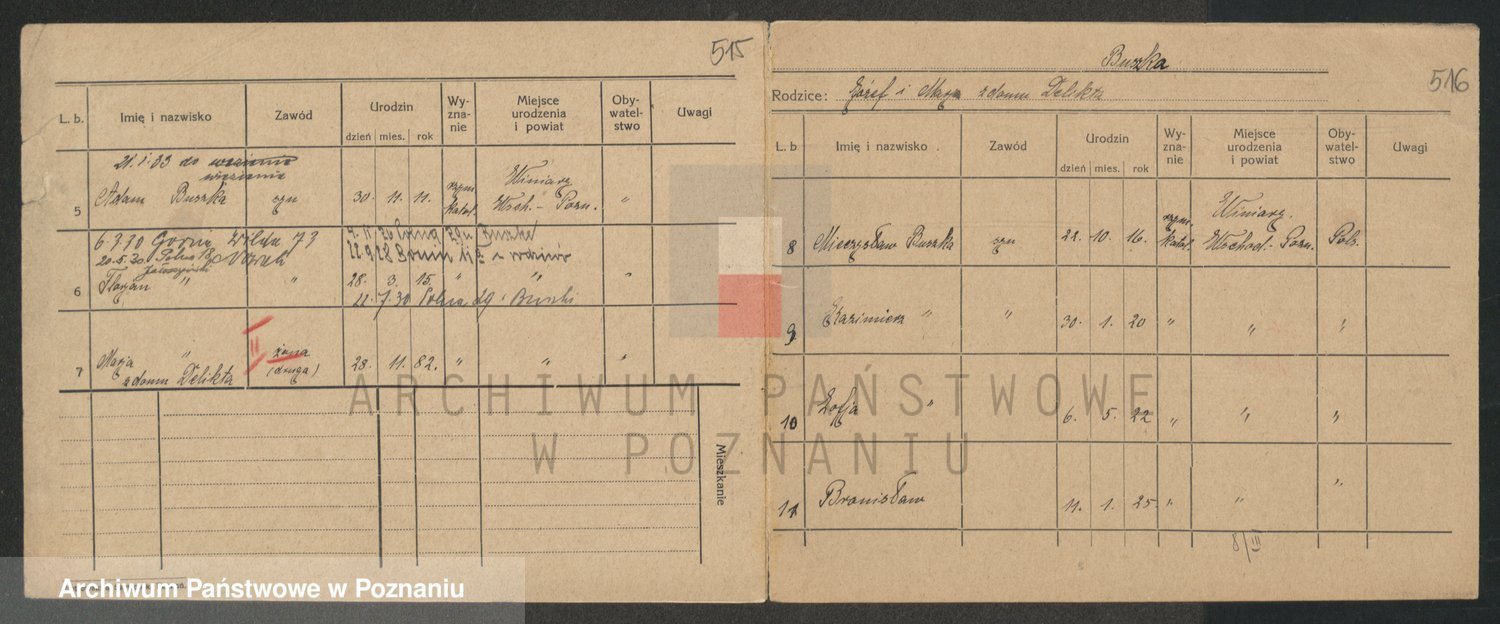 515
L. b.
Imię i nazwisko
Zawód
Urodzin
dzień mies. rok
Wy-
zna-
nie
Miejsce
urodzenia
i powiat
Oby-
watel-
stwo
Uwagi
21. 1. 33 do więzienia
więzienia
5 Adam Buszka syn 30. 11. 11. rzym. katol. Winiary Wsch. - Pozn. "
6.3.30 Górna Wilda 73
20.5.30
6 Florjan " " 28. 3. 15. " " "
22. 7. 30
7 Marja "
z domu Delikta
II żona
(druga)
28. 11. 82. " " "
Mieszkanie
516
Buszka
Rodzice: Józef i Marja z domu Delikta
L. b
Imię i nazwisko
Zawód
Urodzin
dzień mies. rok
Wy-
zna-
nie
Miejsce
urodzenia
i powiat
Oby-
watel-
stwo
Uwagi
8 Mieczysław Buszka syn 22. 10. 16. rzym. katol. Winiary. Wschod. - Pozn. Pols.
9 Kazimierz " " 30. 1. 20 " " "
10 Zofja " 6. 5. 22 " " "
11 Bronisław 11. 1. 25. " " "
8/III
ARCHIWUM PAŃSTWOWE
W POZNANIU
Archiwum Państwowe w Poznaniu